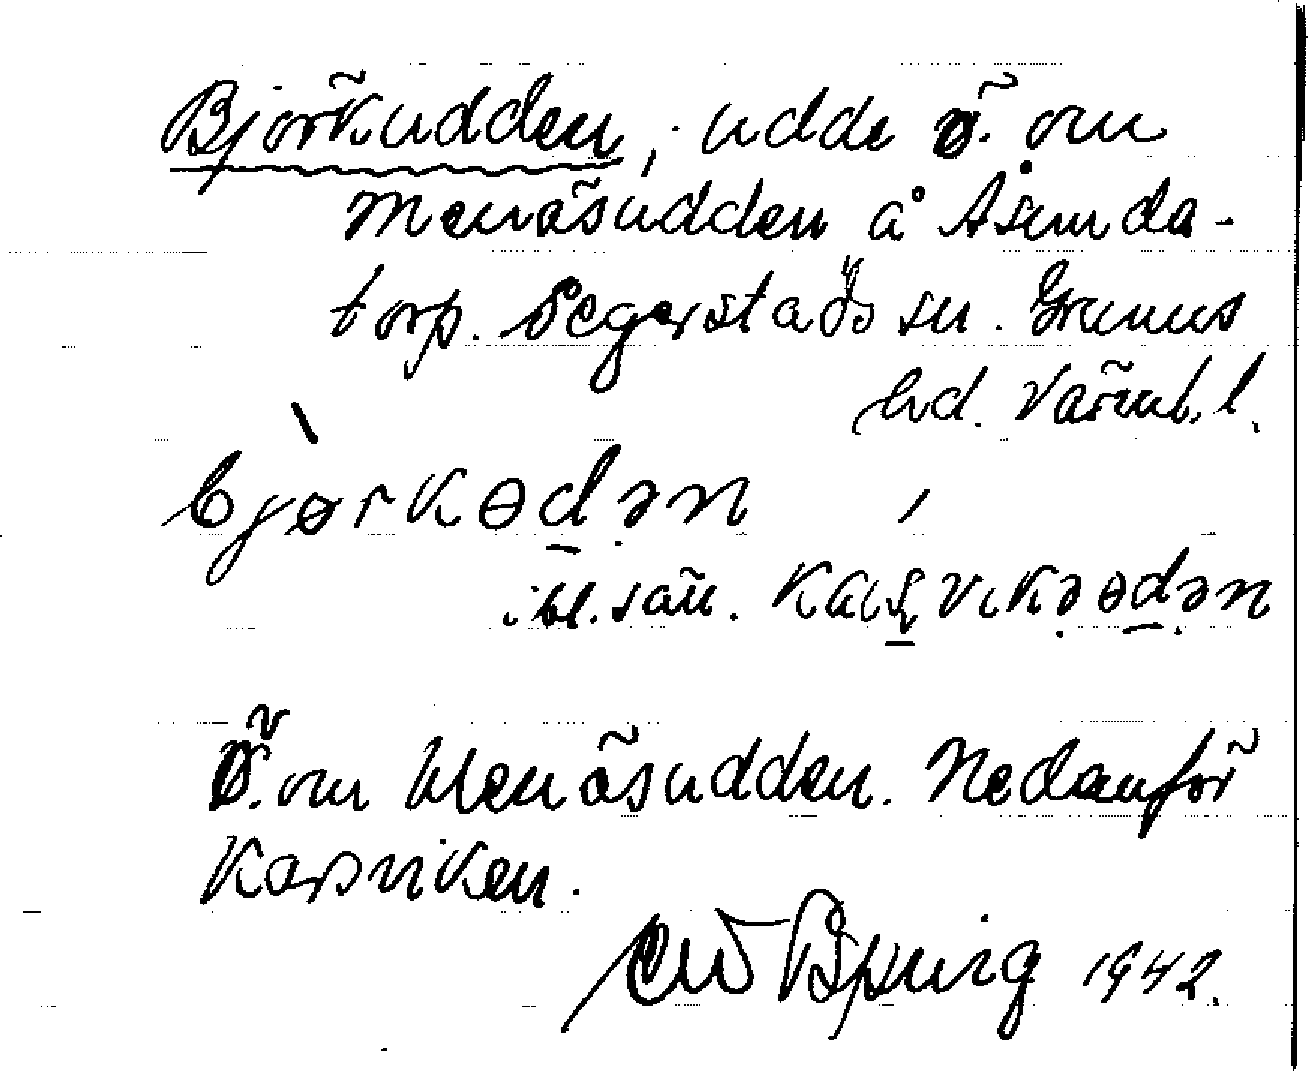 Björkudden, udde ö. om
Menäsudden å Åsunda-
torp. Segerstads sn. Grums
hd. Värml. l.
bjørkɵdən
ibl. säll. kaʂvikəɵdən
Ö. om Menäsudden. Nedanför
Karsviken.
1942.